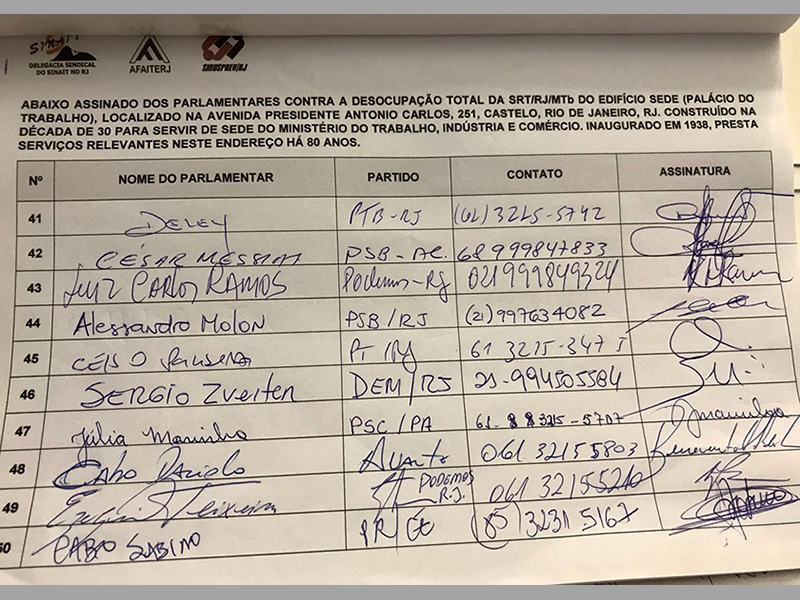 SINAIT
DELEGACIA SINDICAL
DO SINAIT NO RJ
AFAITERJ
SINDSPREV/RJ
ABAIXO ASSINADO DOS PARLAMENTARES CONTRA A DESOCUPAÇÃO TOTAL DA SRT/RJ/MTb DO EDIFÍCIO SEDE (PALÁCIO DO
TRABALHO), LOCALIZADO NA AVENIDA PRESIDENTE ANTONIO CARLOS, 251, CASTELO, RIO DE JANEIRO, RJ. CONSTRUÍDO NA
DÉCADA DE 30 PARA SERVIR DE SEDE DO MINISTÉRIO DO TRABALHO, INDÚSTRIA E COMÉRCIO. INAUGURADO EM 1938, PRESTA
SERVIÇOS RELEVANTES NESTE ENDEREÇO HÁ 80 ANOS.
Nº NOME DO PARLAMENTAR PARTIDO CONTATO ASSINATURA
41 DELEY PTB-RJ (61) 3215-5742
42 CÉSAR MESSIAS PSB-AC. 68 999847833
43 LUIZ CARLOS RAMOS Podemos-RJ 021 999849324
44 Alessandro Molon PSB/RJ (21) 997634082
45 CELSO PANSERA PT/RJ 61 3215-3475
46 SERGIO Zveiten DEM/RJ 21-994505584
47 Júlia Marinho PSC/PA 61- 3215-5707
48 CABO DACIOLO Avante 061 32155803
49 Teixeira PODEMOS R.J. 061 32155210
50 CABO SABINO PR/CE (85) 3231 5167